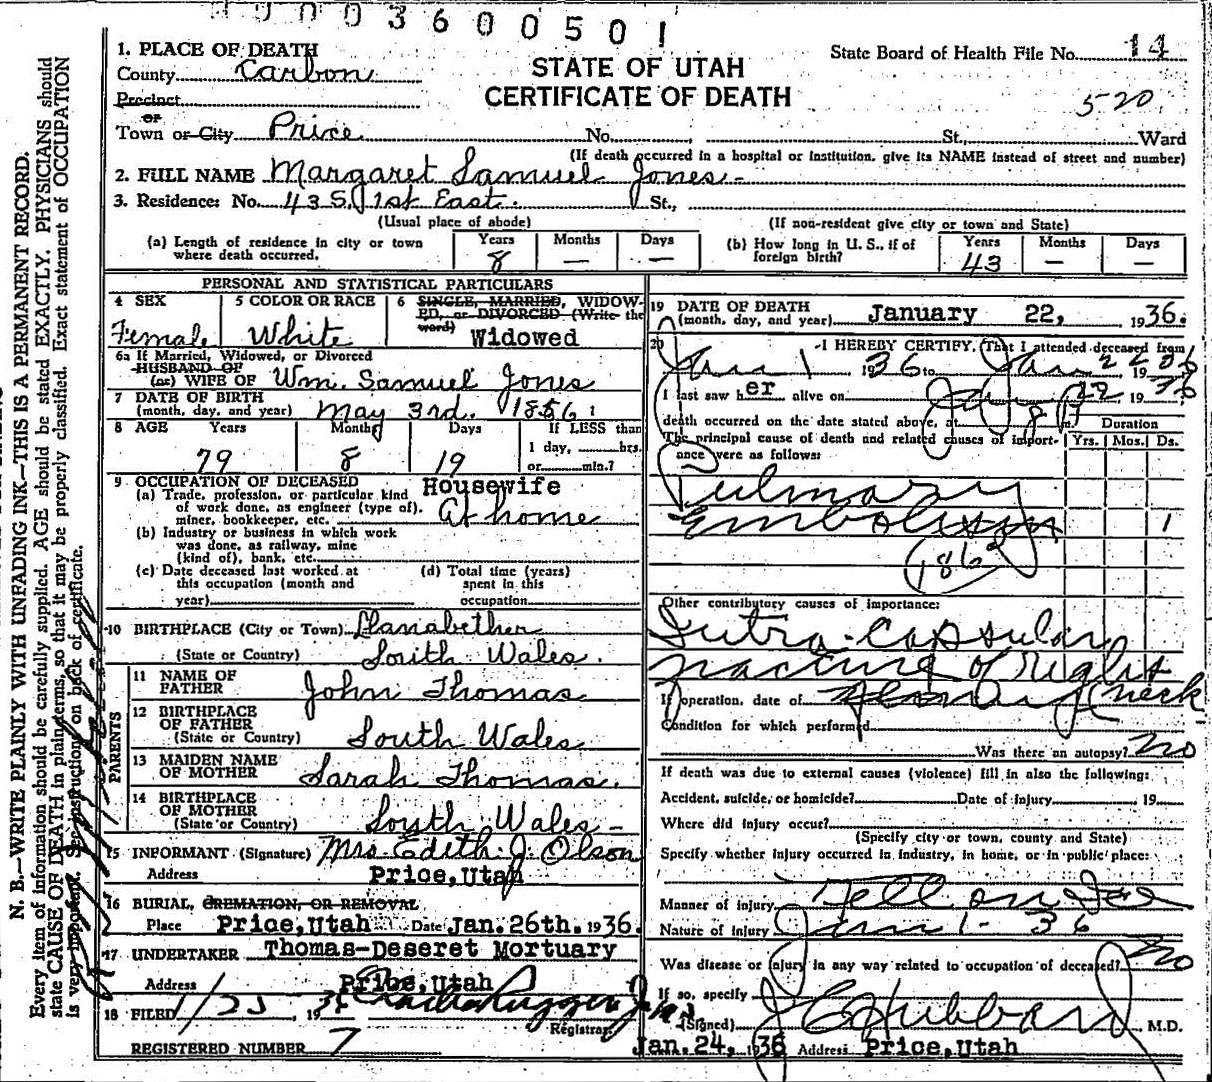 0003600501
1. PLACE OF DEATH
County Carbon
Precinct
or
Town or City Price No. St. Ward
State Board of Health File No. 14
STATE OF UTAH
CERTIFICATE OF DEATH
520
(If death occurred in a hospital or institution, give its NAME instead of street and number)
2. FULL NAME Margaret Samuel Jones
3. Residence: No. 43 S. 1st East St.,
(Usual place of abode) (If non-resident give city or town and State)
(a) Length of residence in city or town where death occurred. Years 8 Months — Days —
(b) How long in U. S., if of foreign birth? Years 43 Months — Days —
PERSONAL AND STATISTICAL PARTICULARS
4 SEX Female
5 COLOR OR RACE White
6 SINGLE, MARRIED, WIDOWED, or DIVORCED (Write the word) Widowed
6a If Married, Widowed, or Divorced
HUSBAND OF
(or) WIFE OF Wm. Samuel Jones
7 DATE OF BIRTH
(month, day, and year) May 3rd. 1856
8 AGE Years 79 Months 8 Days 19 If LESS than 1 day, hrs. or min.?
9 OCCUPATION OF DECEASED Housewife
(a) Trade, profession, or particular kind
of work done, as engineer (type of),
miner, bookkeeper, etc. At home
(b) Industry or business in which work
was done, as railway, mine
(kind of), bank, etc.
(c) Date deceased last worked at
this occupation (month and
year)
(d) Total time (years)
spent in this
occupation
10 BIRTHPLACE (City or Town) Llanabether
(State or Country) South Wales.
PARENTS
11 NAME OF FATHER John Thomas
12 BIRTHPLACE OF FATHER
(State or Country) South Wales
13 MAIDEN NAME OF MOTHER Sarah Thomas.
14 BIRTHPLACE OF MOTHER
(State or Country) South Wales
15 INFORMANT (Signature) Mrs. Edith J. Olson
Address Price, Utah
16 BURIAL, CREMATION, OR REMOVAL
Place Price, Utah Date Jan. 26th. 1936.
17 UNDERTAKER Thomas-Deseret Mortuary
Address Price, Utah
18 FILED 1/25, 1936
Registrar.
REGISTERED NUMBER 7
19 DATE OF DEATH
(month, day, and year) January 22, 1936.
20 I HEREBY CERTIFY, That I attended deceased from
Jan 1 1936 to Jan 22 1936
I last saw her alive on Jan 22 1936
death occurred on the date stated above, at 8 P m.
The principal cause of death and related causes of importance were as follows:
Duration
Yrs. Mos. Ds.
Pulmonary
Embolism 1
186
Other contributory causes of importance:
Intra-capsular
fracture of right
neck
If operation, date of
Condition for which performed
Was there an autopsy? No
If death was due to external causes (violence) fill in also the following:
Accident, suicide, or homicide? Date of injury 19
Where did injury occur?
(Specify city or town, county and State)
Specify whether injury occurred in industry, in home, or in public place:
Manner of injury Fell on Ice
Nature of injury Jan 1 - 36
Was disease or injury in any way related to occupation of deceased? No
If so, specify
(Signed) J C Hubbard, M.D.
Jan. 24, 1936 Address Price, Utah
N. B.—WRITE PLAINLY WITH UNFADING INK—THIS IS A PERMANENT RECORD.
Every item of information should be carefully supplied. AGE should be stated EXACTLY. PHYSICIANS should
state CAUSE OF DEATH in plain terms, so that it may be properly classified. Exact statement of OCCUPATION
is very important. See instruction on back of certificate.